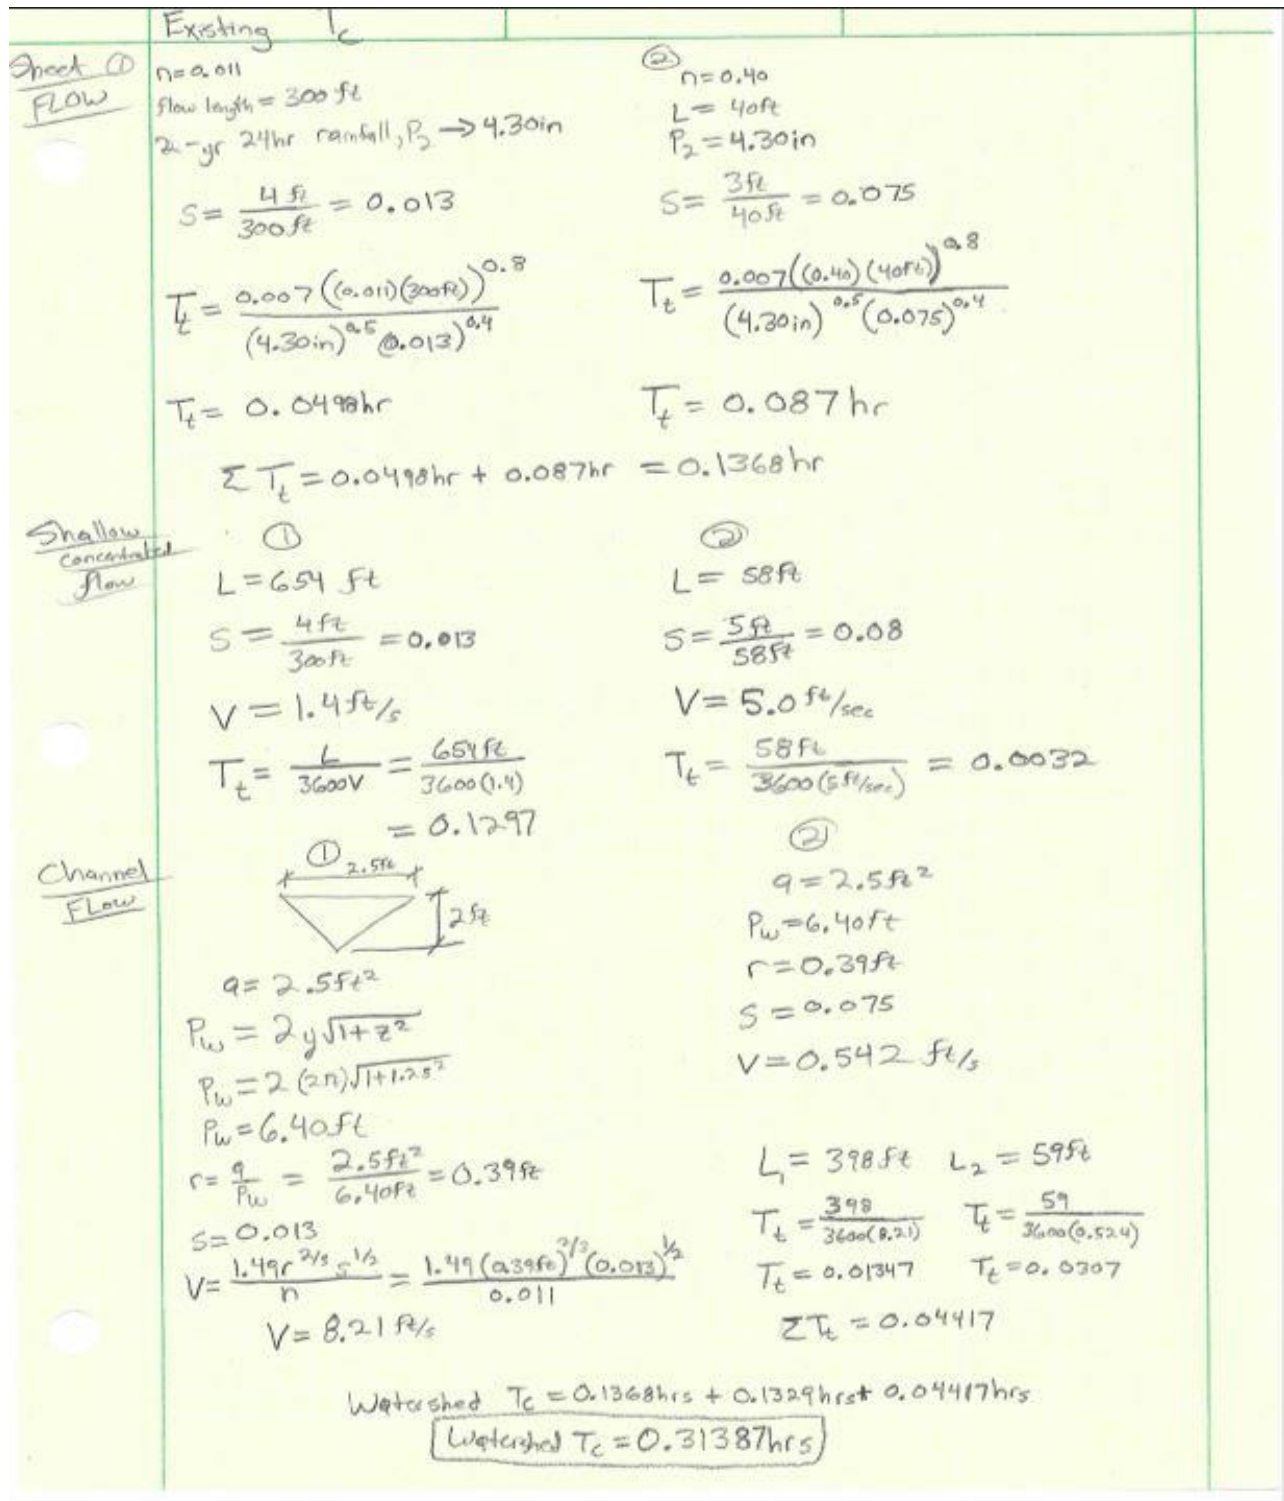 Existing Tc
Sheet ① FLOW
n=0.011
flow length = 300 ft
2-yr 24hr rainfall, P₂ → 4.30in
S = 4 ft / 300 ft = 0.013
Tt = 0.007((0.011)(300ft))^0.8 / (4.30in)^0.5 (0.013)^0.4
Tt = 0.0498hr
②
n=0.40
L = 40ft
P₂ = 4.30in
S = 3ft / 40ft = 0.075
Tt = 0.007((0.40)(40ft))^0.8 / (4.30in)^0.5 (0.075)^0.4
Tt = 0.087 hr
Σ Tt = 0.0498hr + 0.087hr = 0.1368hr
Shallow concentrated flow
①
L = 654 ft
S = 4ft / 300ft = 0.013
V = 1.4 ft/s
Tt = L / 3600V = 654ft / 3600(1.4)
= 0.1297
②
L = 58ft
S = 5ft / 58ft = 0.08
V = 5.0 ft/sec
Tt = 58ft / 3600(5ft/sec) = 0.0032
Channel FLOW
①
2.5ft
2ft
a = 2.5ft²
Pw = 2y√1+z²
Pw = 2(2ft)√1+1.25²
Pw = 6.40ft
r = a / Pw = 2.5ft² / 6.40ft = 0.39ft
S = 0.013
V = 1.49r^2/3 s^1/2 / n = 1.49(0.39ft)^2/3 (0.013)^1/2 / 0.011
V = 8.21 ft/s
②
a = 2.5ft²
Pw = 6.40ft
r = 0.39ft
S = 0.075
V = 0.542 ft/s
L₁ = 398ft L₂ = 59ft
Tt = 398 / 3600(8.21) Tt = 59 / 3600(0.524)
Tt = 0.01347 Tt = 0.0307
ΣTt = 0.04417
Watershed Tc = 0.1368hrs + 0.1329hrs + 0.04417hrs
Watershed Tc = 0.31387hrs